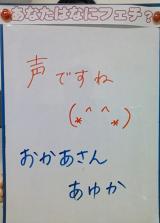 あなたはなにフェチ?
声ですね
(*^^*)
おかあさん
あゆか